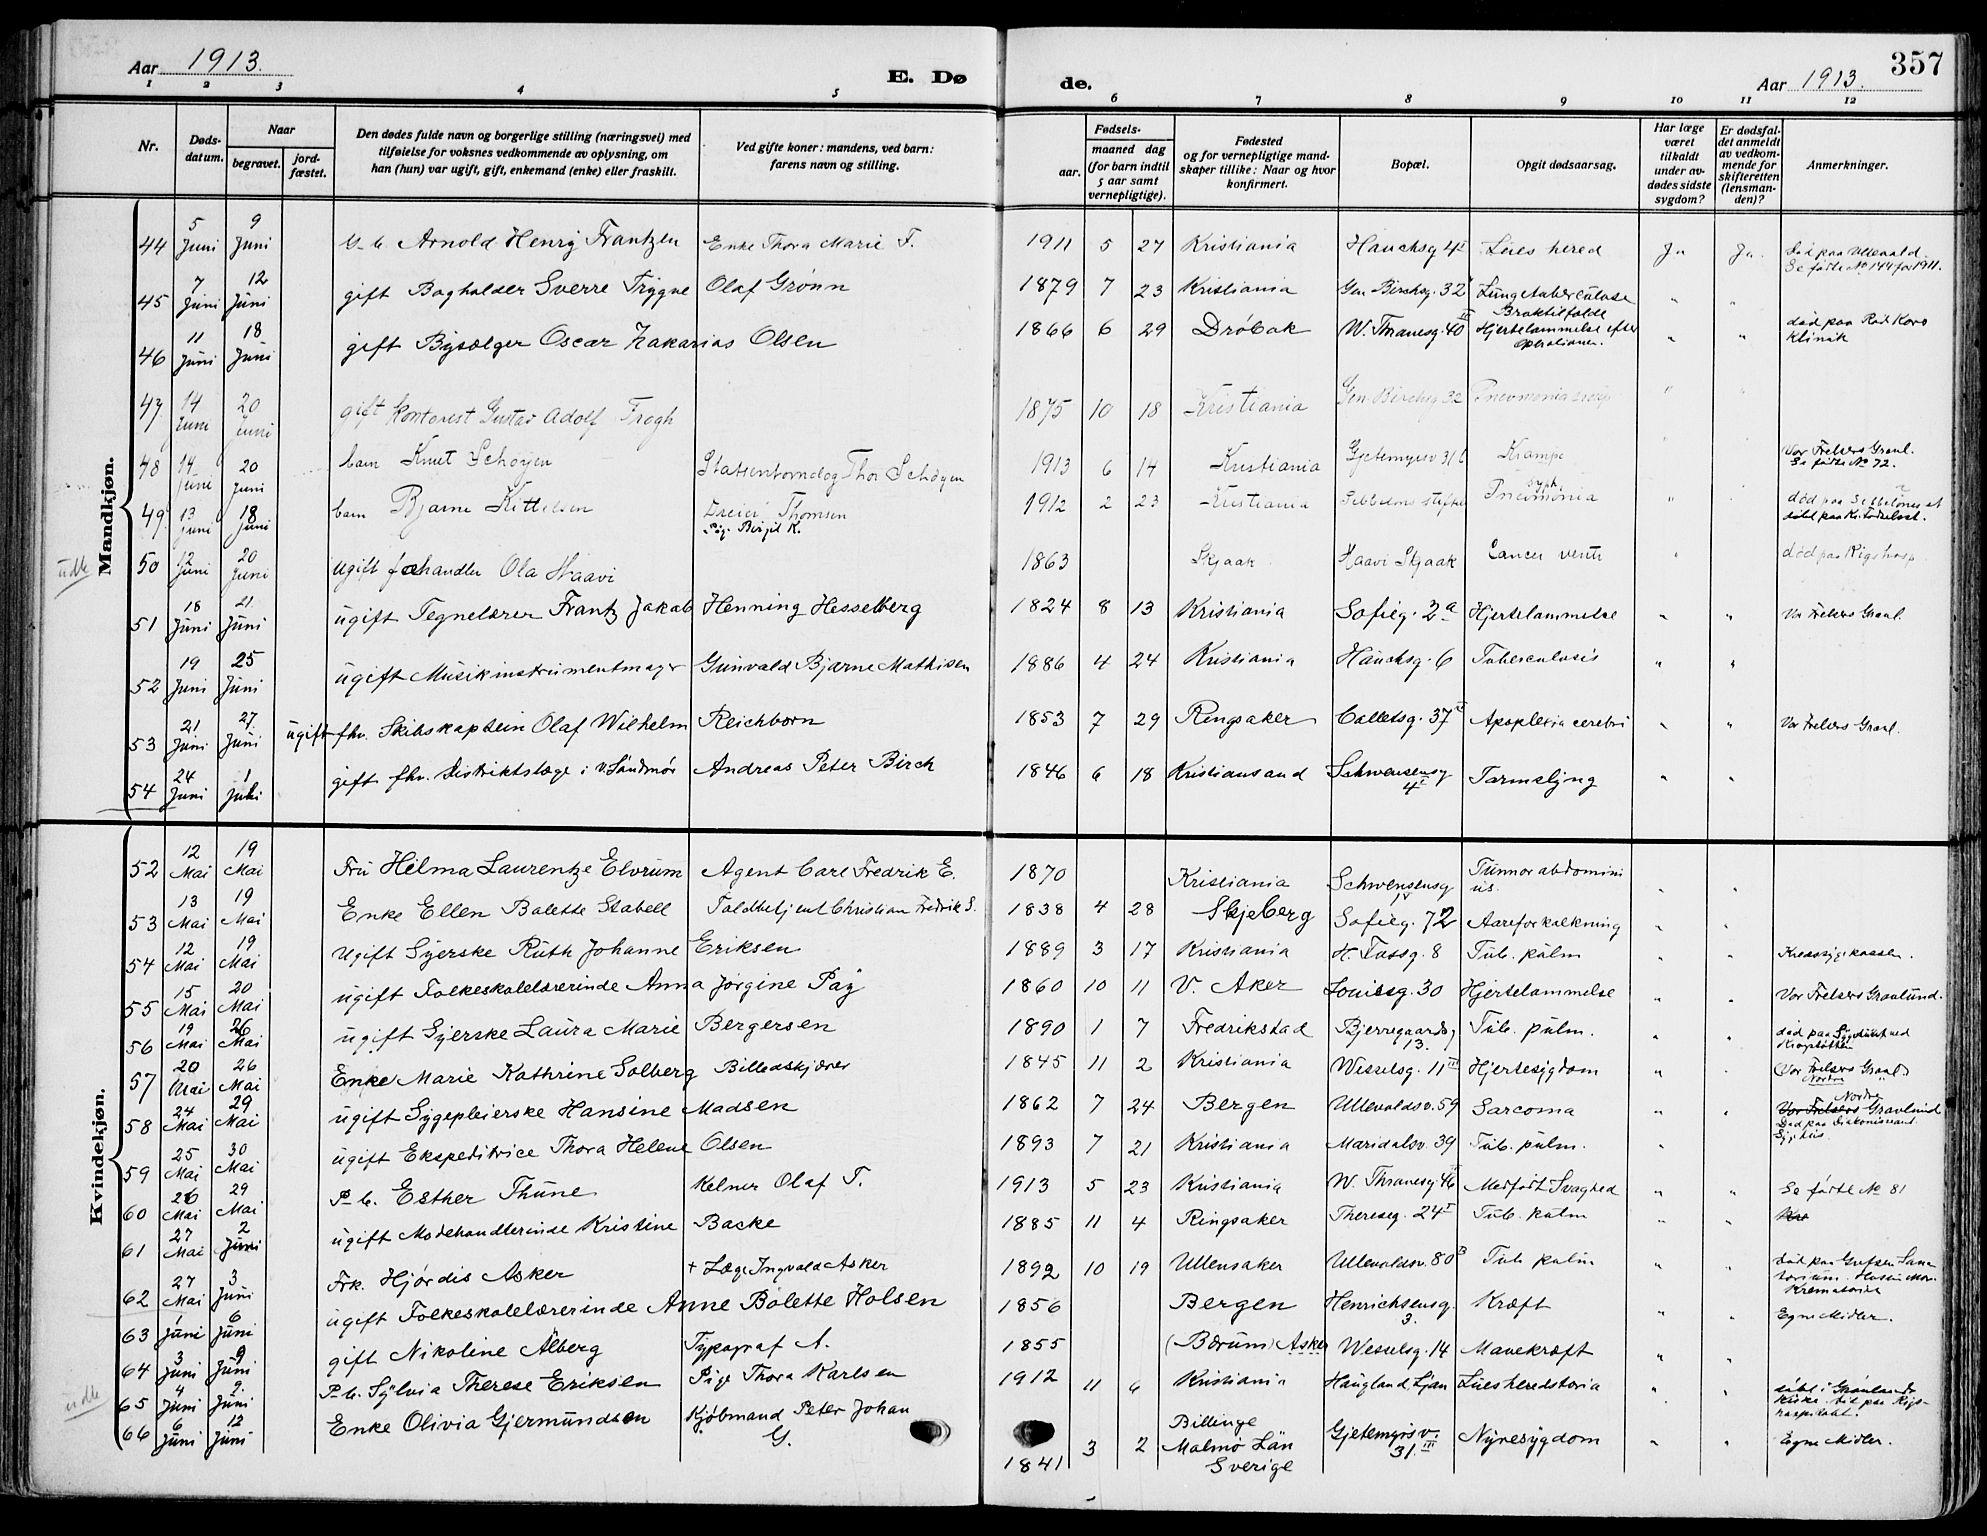 Aar 1913. E. Dø de. Aar 1913. 357
1 2 3 4 5 6 7 8 9 10 11 12
Nr. Døds-datum. Naar begravet. jord-fæstet. Den dødes fulde navn og borgerlige stilling (næringsvei) med tilføielse for voksnes vedkommende av oplysning, om han (hun) var ugift, gift, enkemand (enke) eller fraskilt. Ved gifte koner: mandens, ved barn: farens navn og stilling. aar. Fødsels- maaned dag (for barn indtil 5 aar samt vernepligtige). Fødested og for vernepligtige mand-skaper tillike: Naar og hvor konfirmert. Bopæl. Opgit dødsaarsag. Har læge været tilkaldt under av-dødes sidste sygdom? Er dødsfal-det anmeldt av vedkom-mende for skifteretten (lensman-den)? Anmerkninger.
Mandkjøn.
44 5 Juni 9 Juni Arnold Henry Frantzen Enke Thora Marie F. 1911 5 27 Kristiania Hauchsg 4 Lues hered Ja Ja. Død paa Ullevaal. Se førte No 144 for 1911.
45 7 Juni 12 Juni gift Bogholder Sverre Trygve Olaf Grønn 1879 7 23 Kristiania Gen. Birchsg. 32 Lungetuberculose " "
46 11 Juni 18 Juni gift Oscar Zakarias Olsen 1866 6 29 Drøbak W. Thranesg. 40 Hjertelammelse efter Operationen. " " død paa Rød Kors Klinik
47 14 Juni 20 Juni gift Kontorist Gustav Adolf Frogh 1875 10 18 Kristiania Gen. Birchsg 32 Pneumonia " "
48 14 Juni 20 Juni barn Knut Schøyen Thor Schøyen 1913 6 14 Kristiania Gjetemyrsv 31 Krampe " " Vor Frelsers Gravl. Se førte No 72.
49 13 Juni 18 Juni barn Bjarne Kittelsen Dreier Thomsen Pige Birgit K. 1912 2 23 Kristiania Sebbelows stiftelse Pneumonia " " død paa Sebbelows st
udb 50 12 Juni 20 Juni ugift Ola Haavi 1863 Skjaak Haavi Skjaak Cancer ventr " død paa Rigshosp
51 18 Juni 21 Juni ugift Tegnelærer Frantz Jakob Henning Hesselberg 1824 8 13 Kristiania Sofieg. 2a Hjertelammelse " " Vor Frelsers Gravl.
52 19 Juni 25 Juni ugift Musikinstrumentmager Gunvald Bjarne Mathisen 1886 4 24 Kristiania Hauchsg. 6 Tuberculosis " "
53 21 Juni 27 Juni ugift fhv. Skibskaptein Olaf Wilhelm Reichborn 1853 7 29 Ringsaker Colletsg. 37 Apoplexia cerebri " " Vor Frelsers Gravl.
54 24 Juni 1 Juli gift fhv. Distriktslæge i V. Søndmør Andreas Peter Birch 1846 6 18 Kristiansand Schwensensg 4 Tarmslyng " "
Kvindekjøn.
52 12 Mai 19 Mai Fru Hilma Laurentze Elvrum Agent Carl Fredrik E. 1870 Kristiania Schwensensg IV Tumor abdominius. " "
53 13 Mai 19 Mai Enke Ellen Bolette Stabell Toldbetjent Christian Fredrik S. 1838 4 28 Skjeberg Sofieg. 72 Aareforkalkning " "
54 12 Mai 19 Mai Ugift Syerske Ruth Johanne Eriksen 1889 3 17 Kristiania H. Tassg. 8 Tub. pulm " " Kredssygekassen.
55 15 Mai 20 Mai ugift Folkeskolelærerinde Anna Jørgine Paÿ 1860 10 11 V. Aker Louisesg. 30 Hjertelammelse " " Vor Frelsers Gravlund.
56 19 Mai 26 Mai ugift Syerske Laura Marie Bergersen 1890 1 7 Fredrikstad Bjerregaardsg 13. Tub. pulm. " "
57 20 Mai 26 Mai Enke Marie Kathrine Solberg Billedskjærer 1845 11 2 Kristiania Wesselsg. 11 III Hjertesygdom " " (Vor Frelsers Gravl.) Nordre "
58 24 Mai 29 Mai ugift Sygepleierske Hansine Madsen 1862 7 24 Bergen Ullevoldsv. 59 Sarcoma " " Nordre Vor Frelsers Gravlund Død paa Diakonisseanst. Sygehus.
59 25 Mai 30 Mai ugift Ekspeditrice Thora Helene Olsen 1893 7 21 Kristiania Maridalsv. 39 Tub. pulm. "
60 26 Mai 29 Mai P. b. Esther Thune Kelner Olaf T. 1913 5 23 Kristiania W. Thranesg. 46 Medfødt Svaghed " " Se førte No 81
61 27 Mai 2 Juni ugift Modehandlerinde Kristine Backe 1885 11 4 Ringsaker Thereseg. 24 I Tub. pulm " "
62 27 Mai 3 Juni Frk. Hjørdis Asker + Læge Ingvald Asker 1892 10 19 Ullensaker Ullevoldsv. 80 B Tub. pulm " " død paa Grefsen Sanatorium.
63 1 Juni 6 Juni ugift Folkeskolelærerinde Anne Bolette Holsen 1856 Bergen Henrichsensg. 3. Kræft " " Egne Midler.
64 3 Juni 9 Juni gift Nikoline Alberg Typograf A. 1855 (Bærum) Asker Wesselsg. 14 Mavekræft " "
udb 65 4 Juni 9. Juni P. b. Sylvia Therese Eriksen Pige Thora Karlsen 1912 11 6 Kristiania Haugland, Ljan Lues heredetaria " " døbt i Grønlands Kirke. død paa Rigshospitalet.
66 6 Juni 12 Juni Enke Olivia Gjermundsen Kjøbmand Peter Johan G. 1841 3 2 Billinge Malmø Län Sverige Gjetemyrsv. 31. III Nyresygdom " " Egne Midler.